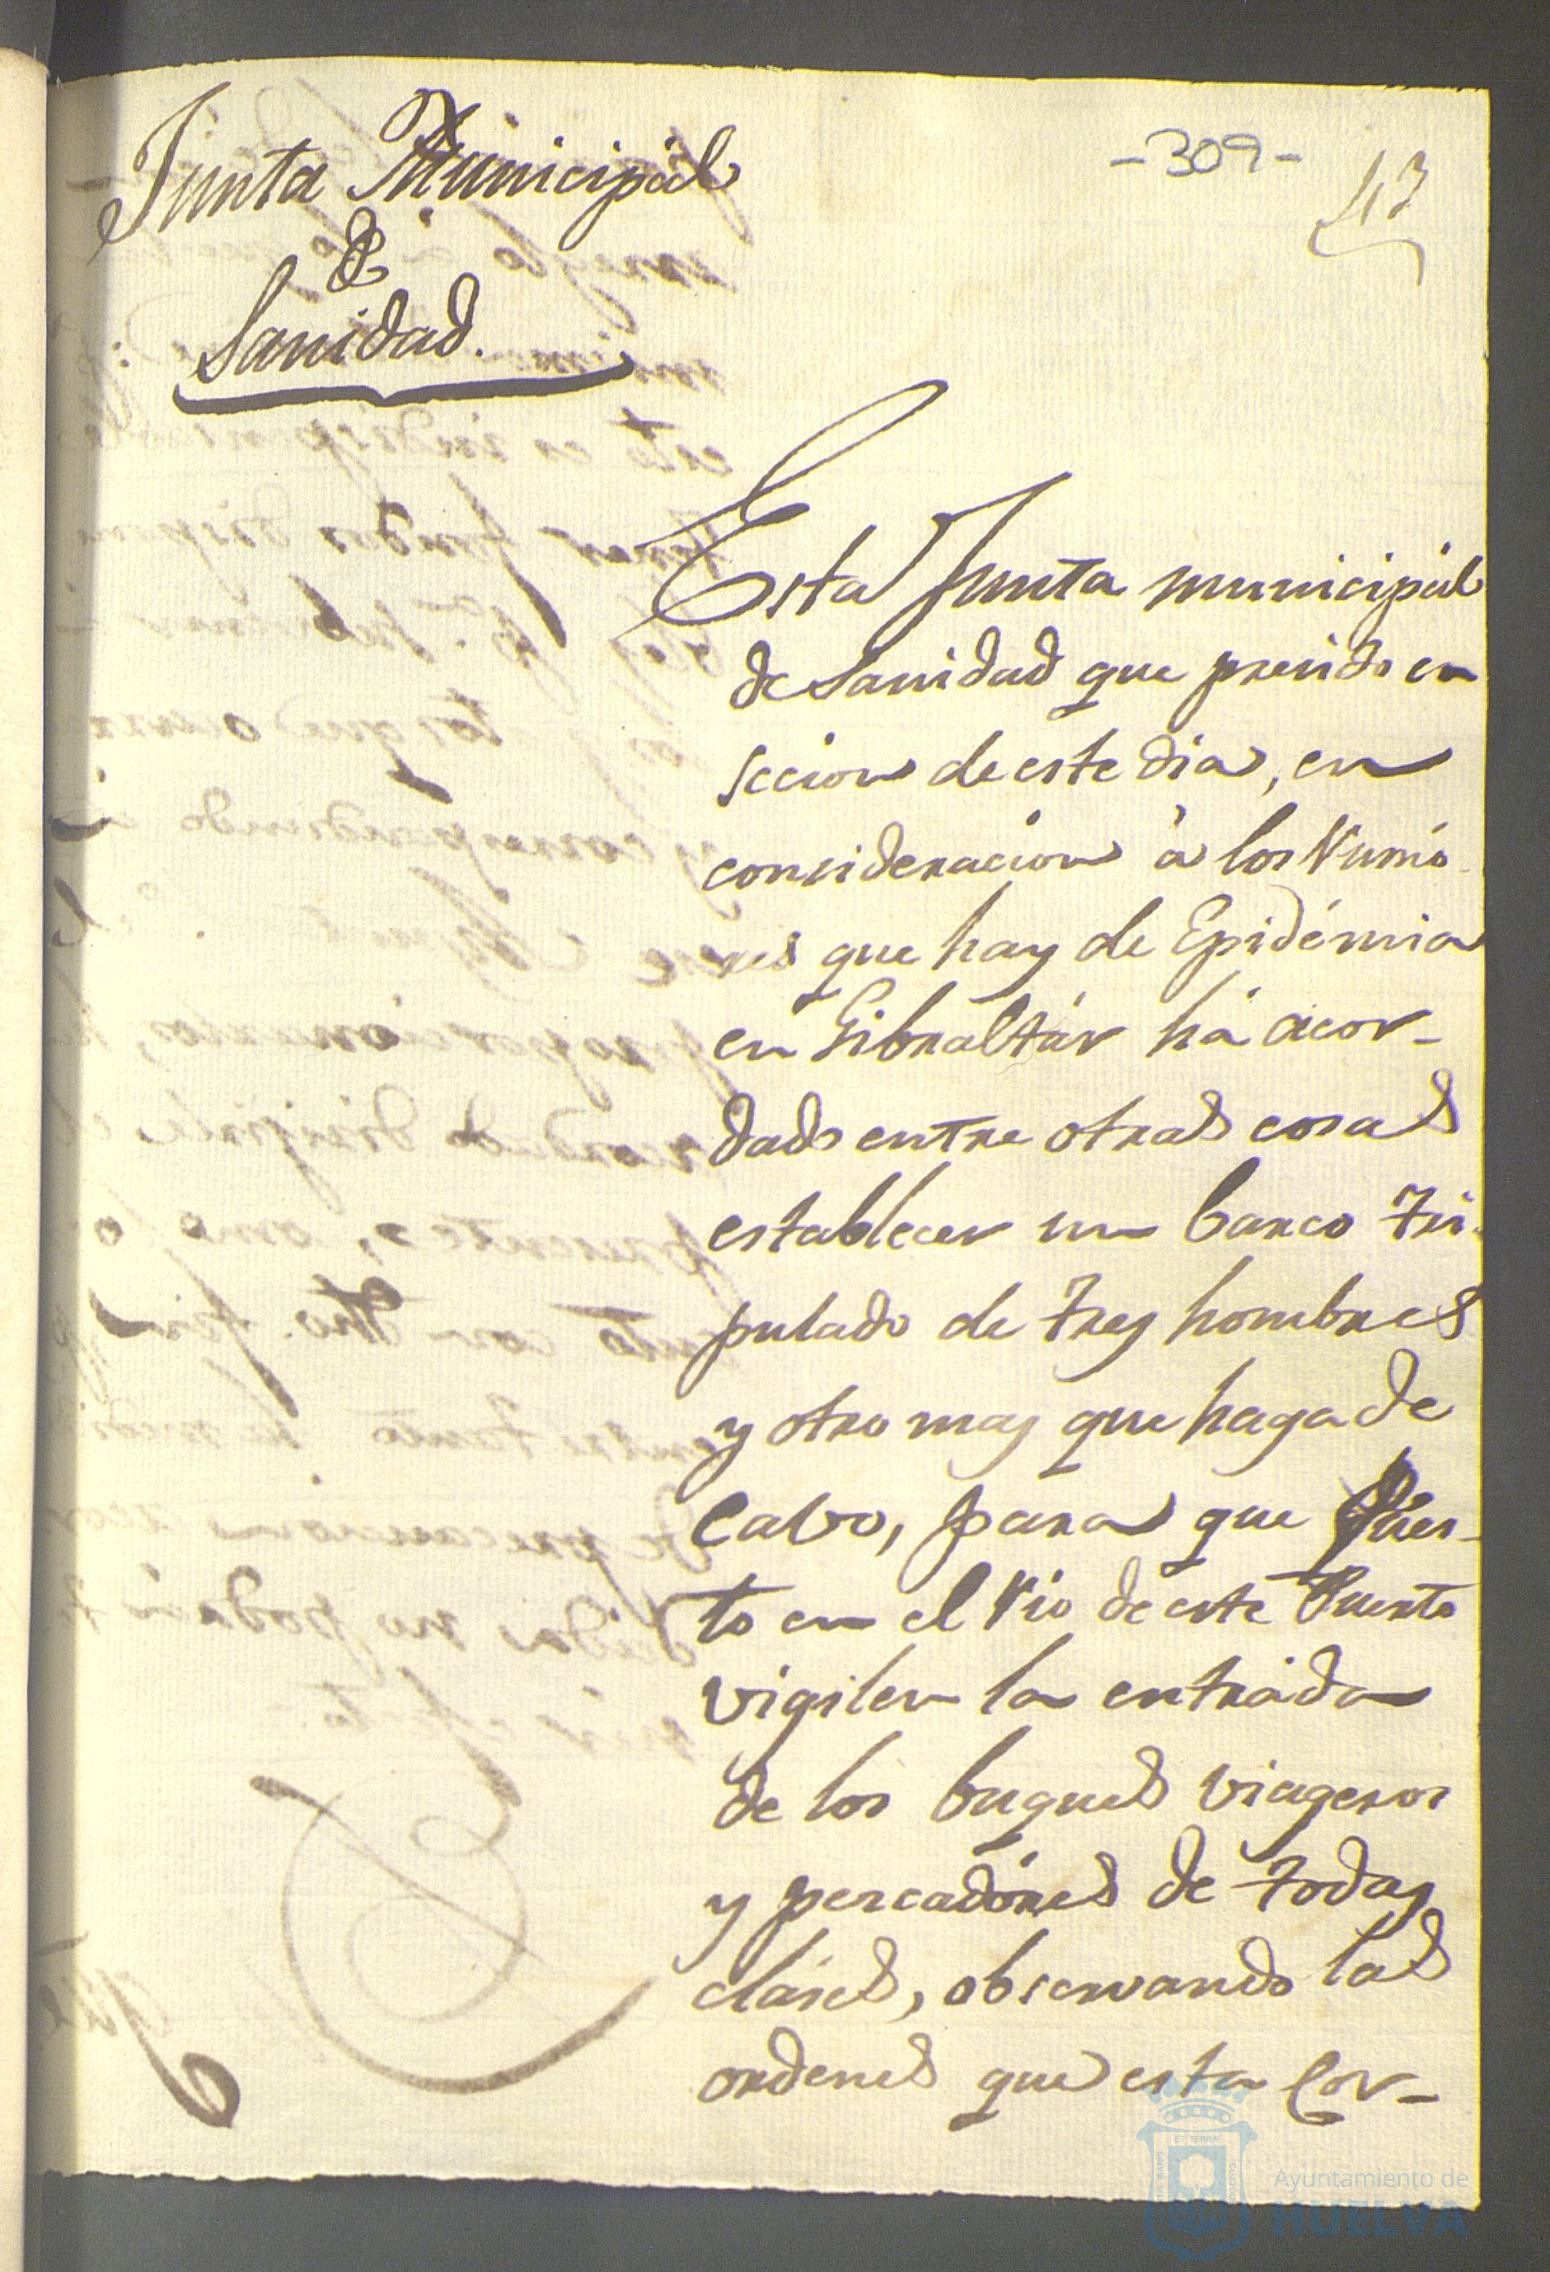 Junta Municipal
de
Sanidad.
-309-
43
Esta Junta municipál
de Sanidad que presido en
seccion de este dia, en
consideracion à los rumó
res que hay de Epidémia
en Gibraltár há acor-
dado entre otras cosas
establecer un barco tri-
pulado de tres hombres
y otro mas que haga de
Cabo, para que Pues-
to en el rio de este Puerto
vigilen la entráda
de los buques viageros
y pescadóres de todas
cláses, observando las
ordenes que esta Cor-
Ayuntamiento de
HUELVA